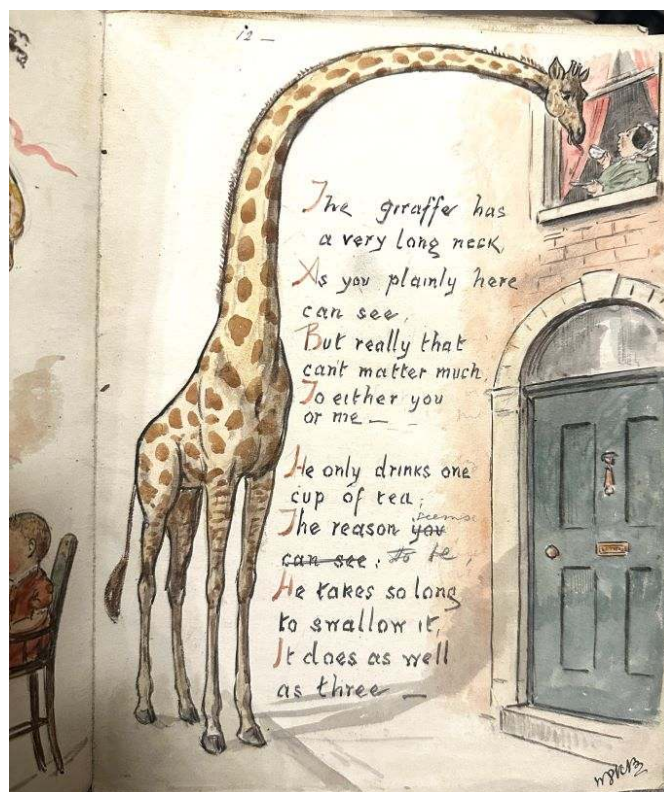 12 —
The giraffe has
a very long neck,
As you plainly here
can see,
But really that
can't matter much,
To either you
or me —
He only drinks one
cup of tea;
The reason you seems
can see; to be,
He takes so long
to swallow it,
It does as well
as three —